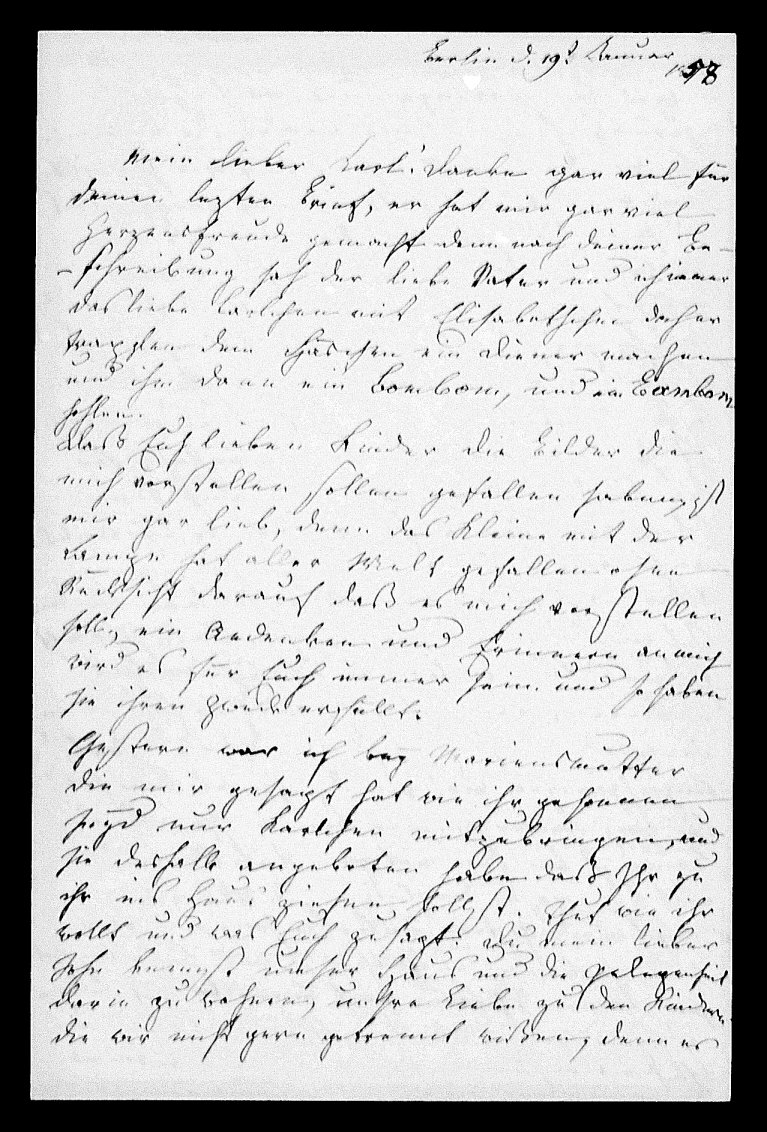 Berlin d. 19t Januar
1858
Mein lieber Carl! Danke gar viel für
deinen lezten Brief, er hat mir gar viel
Herzensfreude gemacht denn nach deiner Be-
-schreibung sah der liebe Vater und ich immer
das liebe Carlchen mit Elisabethchen daher
trappeln dem Häschen ein Diener machen
und ihm dann ein Bombom, und ein Bombom
hohlen.
Daß Euch lieben Kinder die Bilder die
mich vorstellen sollen gefallen haben, ist
mir gar lieb, denn das Kleine mit der
Lampe hat aller Welt gefallen ohne
Rücksicht darauf daß es mich vorstellen
soll, ein Andenken und Erinnern an mich
wird es für Euch immer sein und so haben
sie ihren Zweck erfüllt.
Gestern war ich bey Mariensmutter
die mir gesagt hat wie ihr gesonnen
seyd nur Karlchen mitzubringen, und
sie deshalb angeboten habe daß Ihr zu
ihr ins Haus ziehen sollst. Thut wie ihr
wollt und was Euch zusagt. Du mein lieber
Sohn kennst unser Haus und die Gelegenheit
darin zu wohnen, unsre Liebe zu den Kindern
die wir nicht gern getrennt wißen, denn es